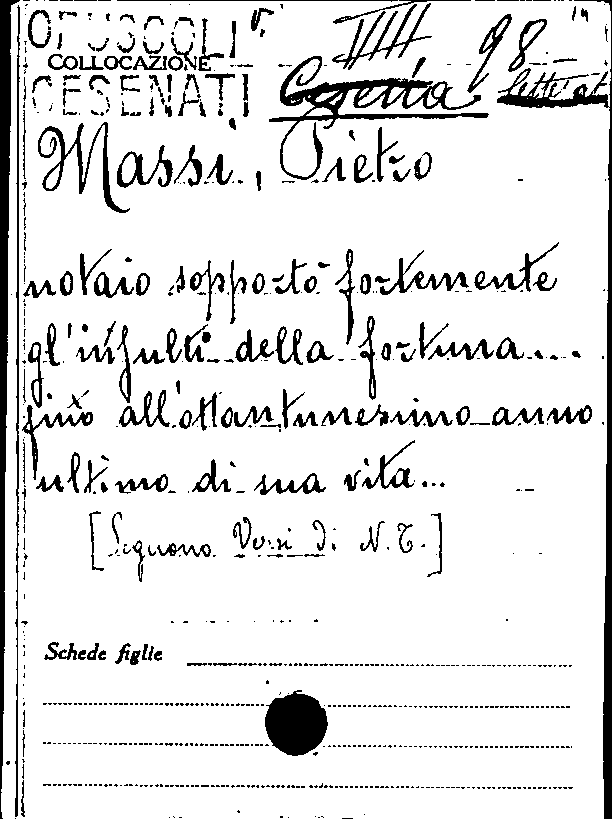 OPUSCOLI VIII 98
COLLOCAZIONE
CESENATI Cesena
Massi, Pietro
notaio sopportò fortemente
gl'insulti della fortuna....
fino all'ottantunesimo anno
ultimo di sua vita...
[Seguono Versi di N. T.]
Schede figlie